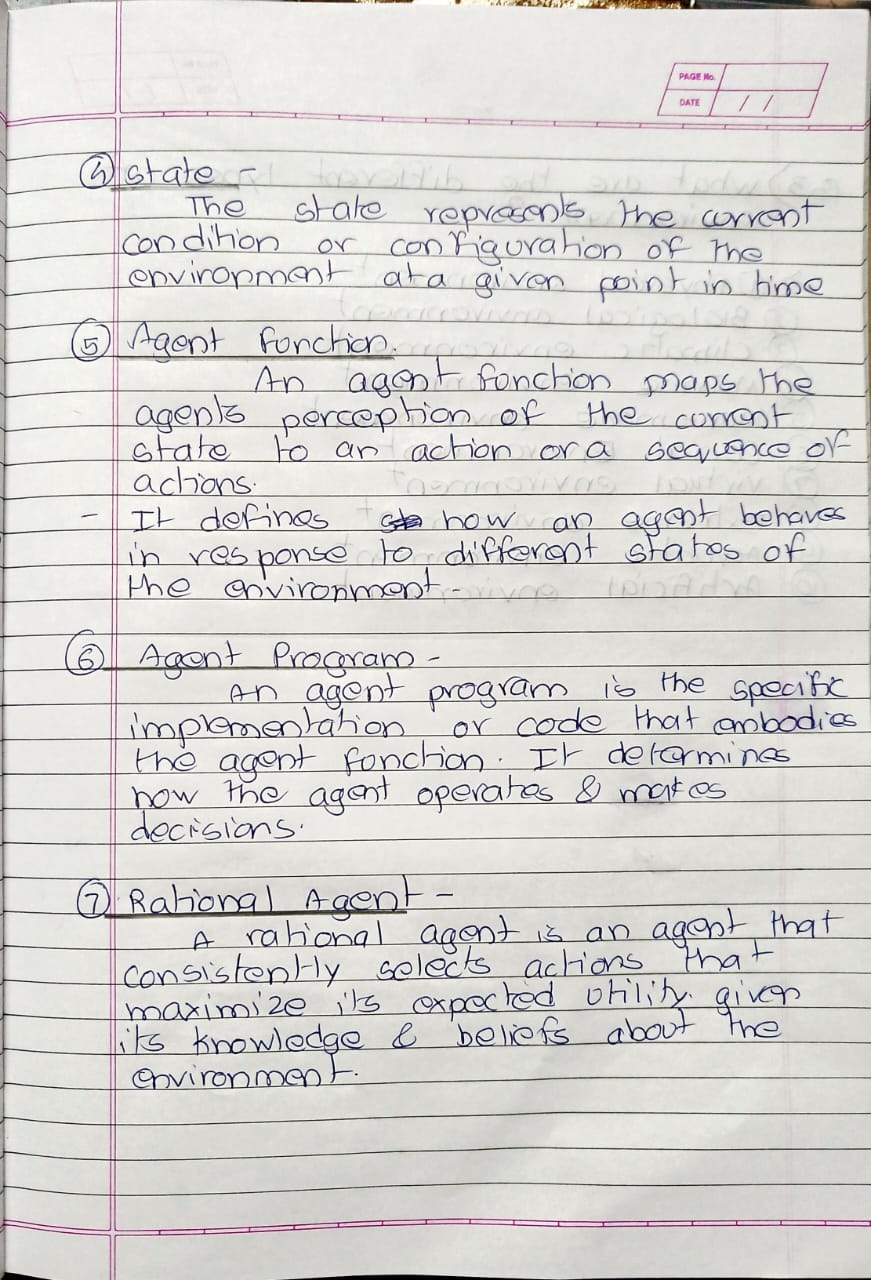 PAGE No.
DATE / /
④ State -
The state represents the current
condition or configuration of the
environment at a given point in time
⑤ Agent Function.
An agent function maps the
agent's perception of the current
state to an action or a sequence of
actions.
- It defines how an agent behaves
in response to different states of
the environment -
⑥ Agent Program -
An agent program is the specific
implementation or code that embodies
the agent function. It determines
how the agent operates & makes
decisions.
⑦ Rational Agent -
A rational agent is an agent that
consistently selects actions that
maximize its expected utility. given
its knowledge & beliefs about the
environment.